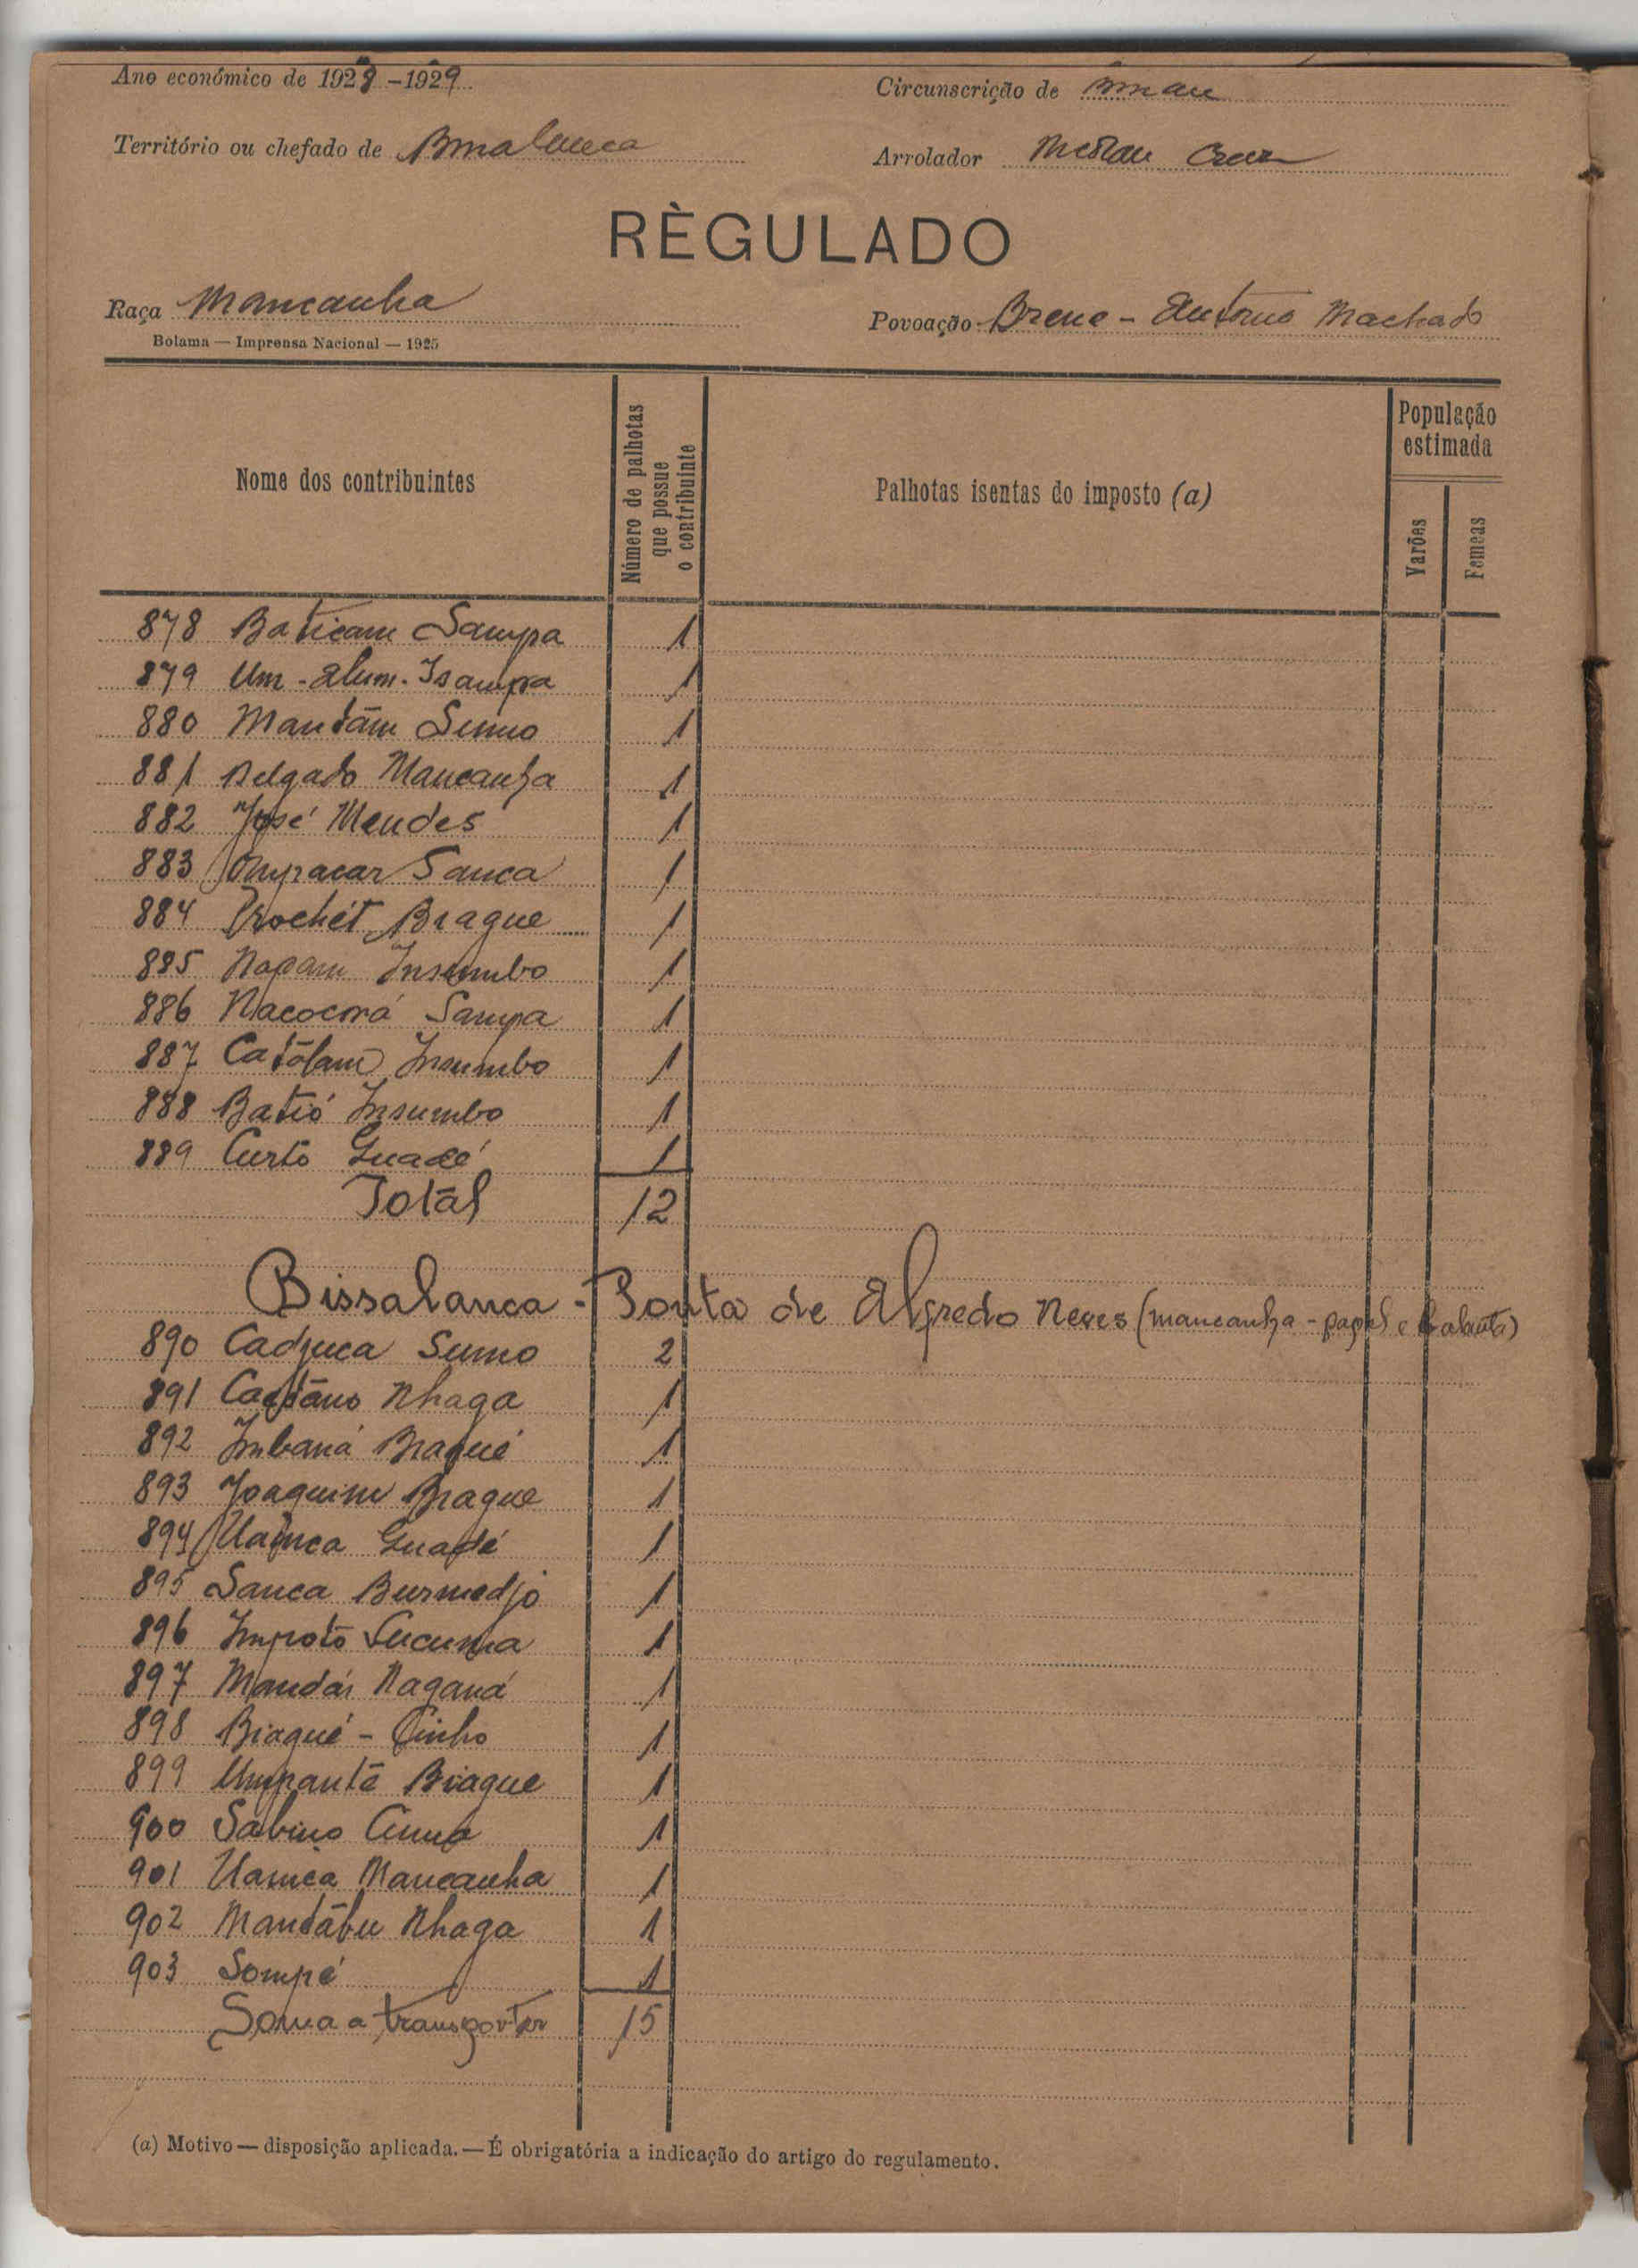 Ano económico de 1928-1929
Circunscrição de Bissau
Território ou chefado de Bissalanca
Arrolador Cruz
RÈGULADO
Raça Mancanha
Povoação Brene - Antonio Machado
Bolama — Imprensa Nacional — 1925
Nome dos contribuintes
Número de palhotas que possue o contribuinte
Palhotas isentas do imposto (a)
População estimada
Varões
Femeas
878 Baticam Sampa 1
879 Um-alum-Isampa 1
880 Mantām Sumo 1
881 Delgado Mancanha 1
882 José Mendes 1
883 Sanca 1
884 Brague 1
885 Napam Insumbo 1
886 Nacocorá Sampa 1
887 Catōlam Insumbo 1
888 Batió Insumbo 1
889 Curtō Guadé 1
Totāl 12
Bissalanca - Ponta de Alfredo Neves (mancanha - papel e balanta)
890 Cadjuca Sumo 2
891 Caetāno Nhaga 1
892 Imbaná Biagué 1
893 Joaquim Biague 1
894 Guadé 1
895 Sanca Burmedjo 1
896 Impotō 1
897 Mandái Naganá 1
898 Biagué - 1
899 Umpantā Biague 1
900 Sabino 1
901 Uanica Mancanha 1
902 Mantābu Nhaga 1
903 Sompé 1
Soma a transportar 15
(a) Motivo — disposição aplicada. — É obrigatória a indicação do artigo do regulamento.